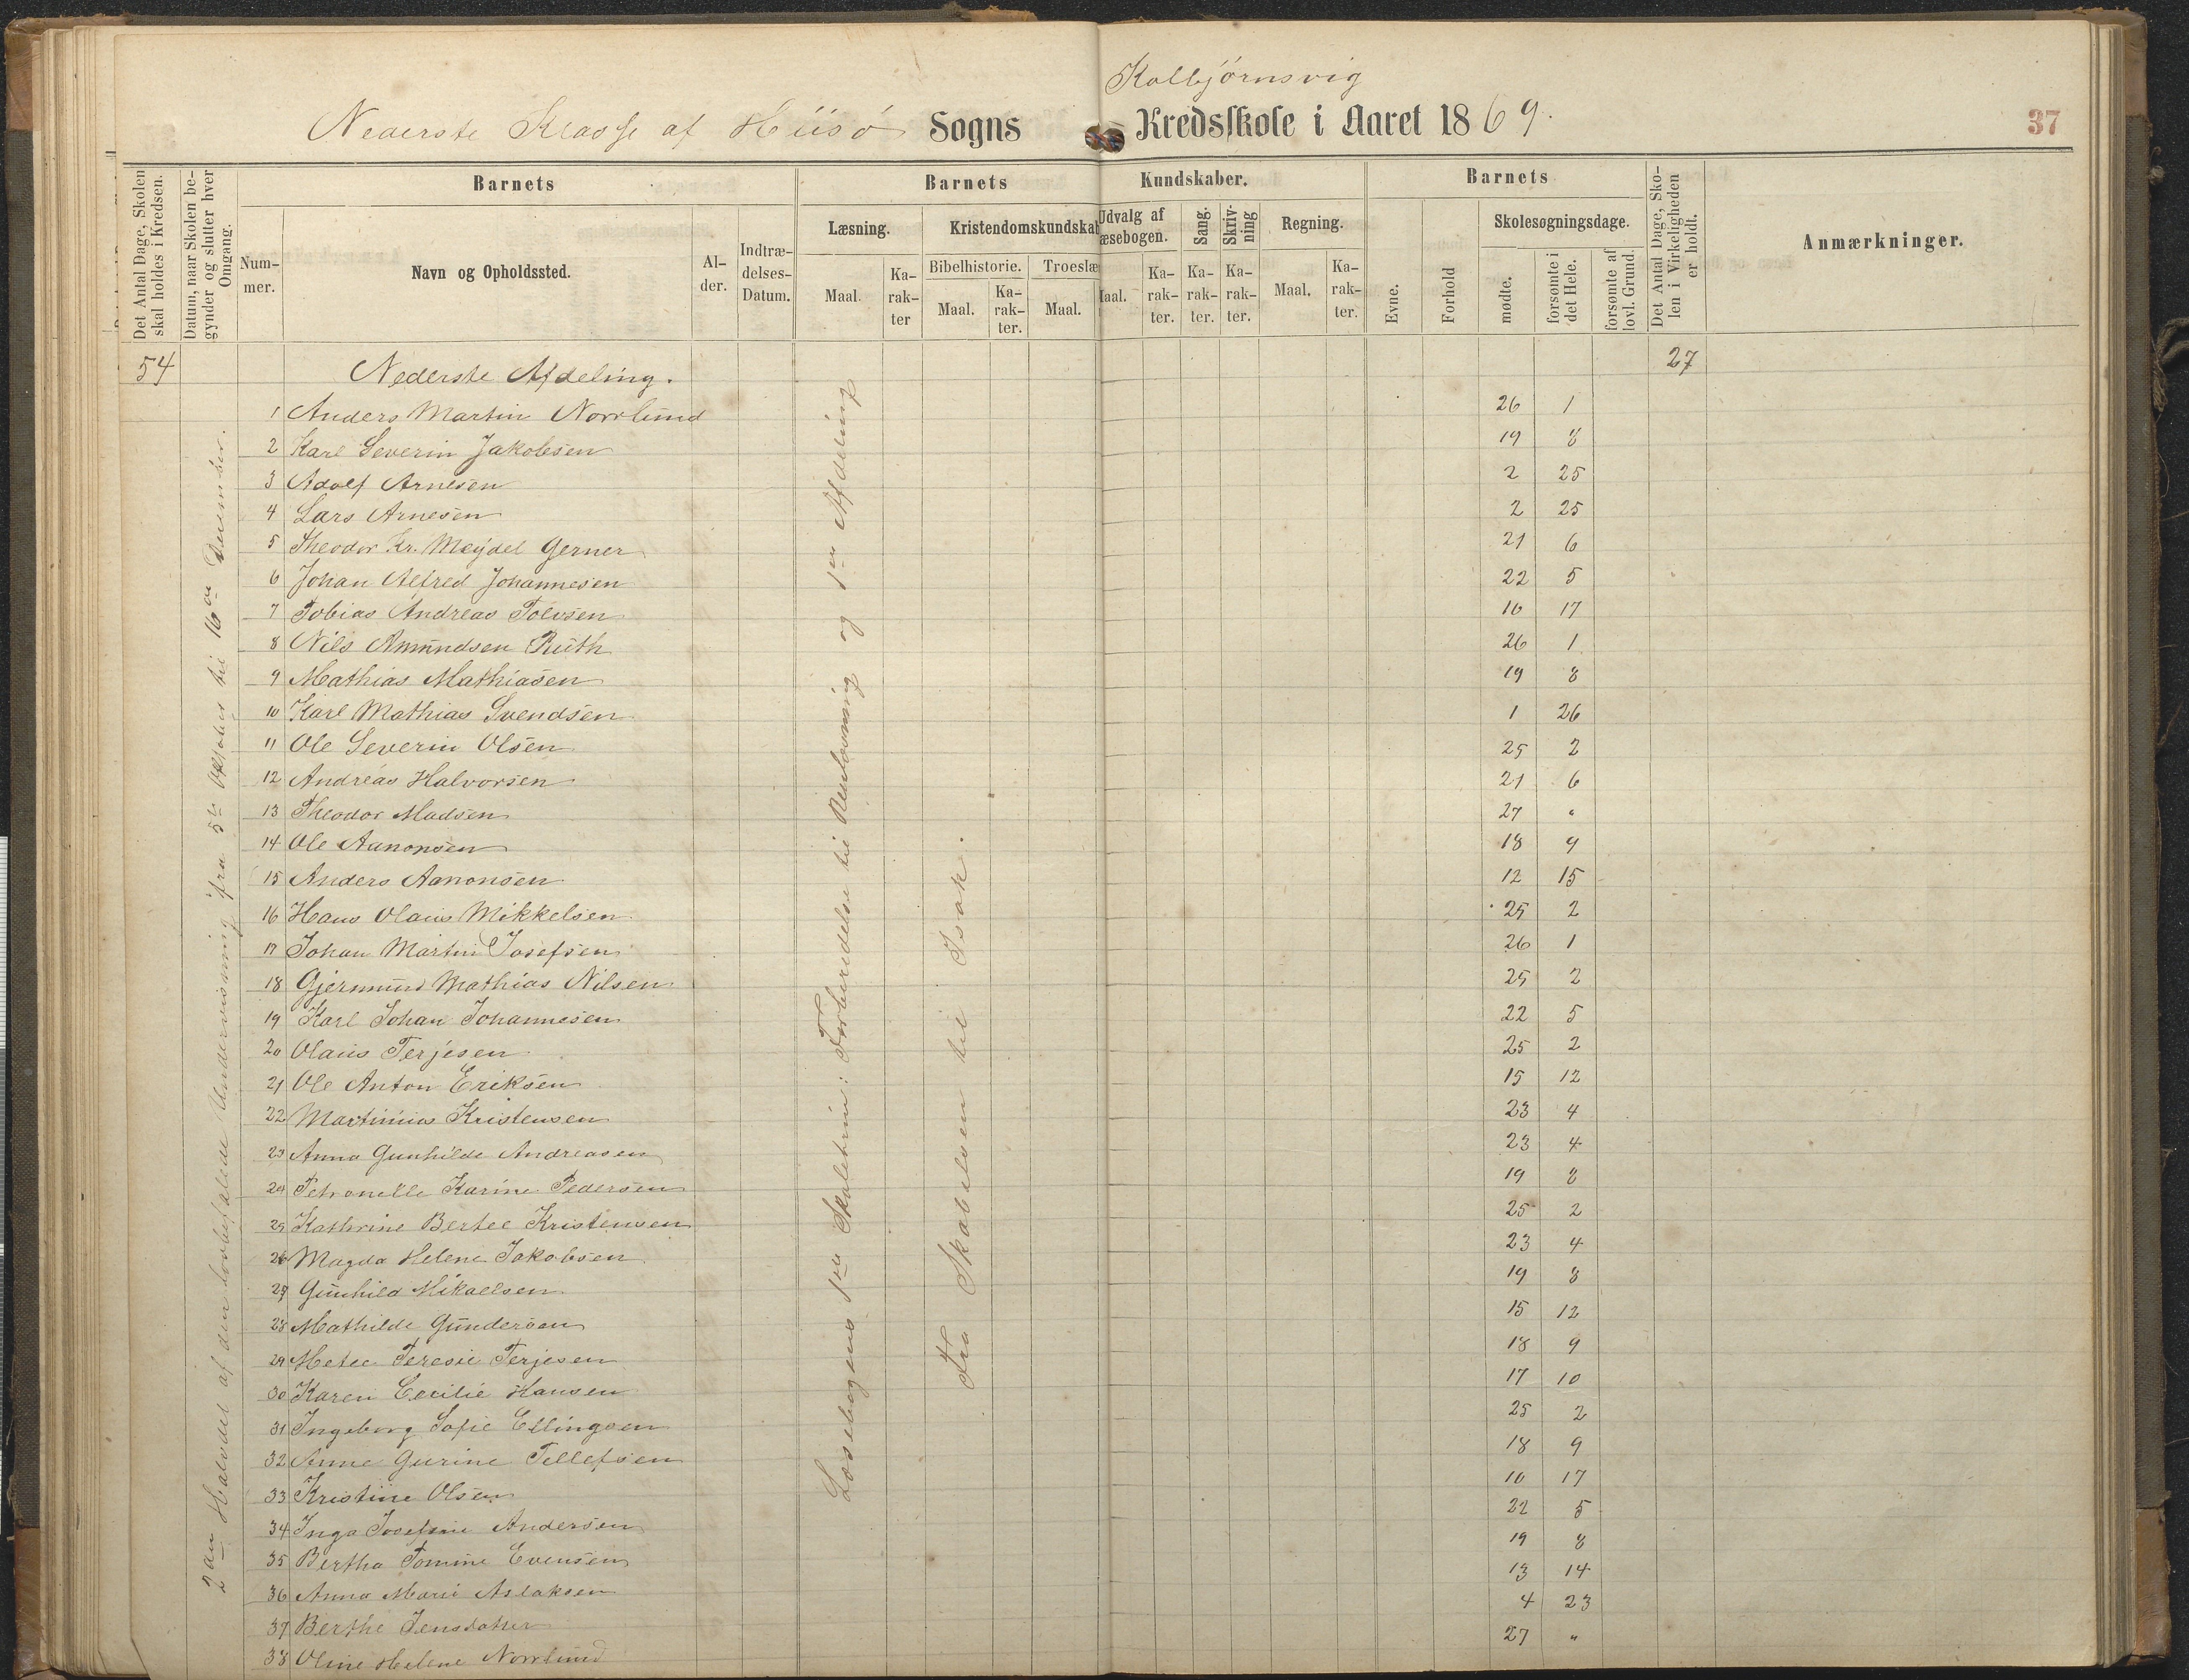 Kolbjørnsvig
Nederste Klasse af Hiisø Sogns Kredsskole i Aaret 1869.
37
Det Antal Dage, Skolen skal holdes i Kredsen.
Datum, naar Skolen begynder og slutter hver Omgang.
Barnets
Barnets Kundskaber.
Barnets
Det Antal Dage, Skolen i Virkeligheden er holdt.
Anmærkninger.
Nummer.
Navn og Opholdssted.
Alder.
Indtrædelses-Datum.
Læsning.
Kristendomskundskab
Udvalg af Læsebogen.
Sang.
Skrivning
Regning.
Skolesøgningsdage.
Maal.
Karakter
Bibelhistorie.
Troeslæ
Maal.
Karakter.
Maal.
Maal.
Karakter.
Karakter.
Karakter.
Maal.
Karakter.
Evne.
Forhold
mødte.
forsømte i det Hele.
forsømte af lovl. Grund.
54 Nederste Afdeling. 27
1 Anders Martin Norrlund 26 1
2 Karl Severin Jakobsen 19 8
3 Adolf Arnesen 2 25
4 Lars Arnesen 2 25
5 Theodor Kr. Meydel Gerner 21 6
6 Johan Alfred Johannesen 22 5
7 Tobias Andreas Tolvsen 10 17
8 Nils Amundsen Ruth 26 1
9 Mathias Mathiasen 19 8
10 Karl Mathias Svendsen 1 26
11 Ole Severin Olsen 25 2
12 Andreas Halvorsen 21 6
13 Theodor Madsen 27 "
14 Ole Aanonsen 18 9
15 Anders Aanonsen 12 15
16 Hans Olaus Mikkelsen 25 2
17 Johan Martin Josefsen 26 1
18 Gjermund Mathias Nilsen 25 2
19 Karl Johan Johannesen 22 5
20 Olaus Terjesen 25 2
21 Ole Anton Eriksen 15 12
22 Martinius Kristensen 23 4
23 Anna Gunhilde Andreasen 23 4
24 Petronelle Karine Pedersen 19 8
25 Kathrine Bertee Kristensen 25 2
26 Magda Helene Jakobsen 23 4
27 Gunhild Mikaelsen 19 8
28 Mathilde Gundersen 15 12
29 Metee Teresie Terjesen 18 9
30 Karen Cecilie Hansen 17 10
31 Ingeborg Sofie Ellingsen 25 2
32 Anne Gurine Tellefsen 18 9
33 Kristine Olsen 10 17
34 Inga Josefine Andersen 22 5
35 Bertha Tomine Evensen 19 8
36 Anna Marie Aslaksen 13 14
37 Berthe Jensdatter 4 23
38 Oline Helene Norrlund 27 "
2den Halvdel af den lovbefalede Undervisning fra 5te Oktober til 16de Decemeber.
Læsebogens 1ste Skoletrin: Forberedelse til Renlæsning og 1ste Afdeling
Fra Skabelsen til Isak.